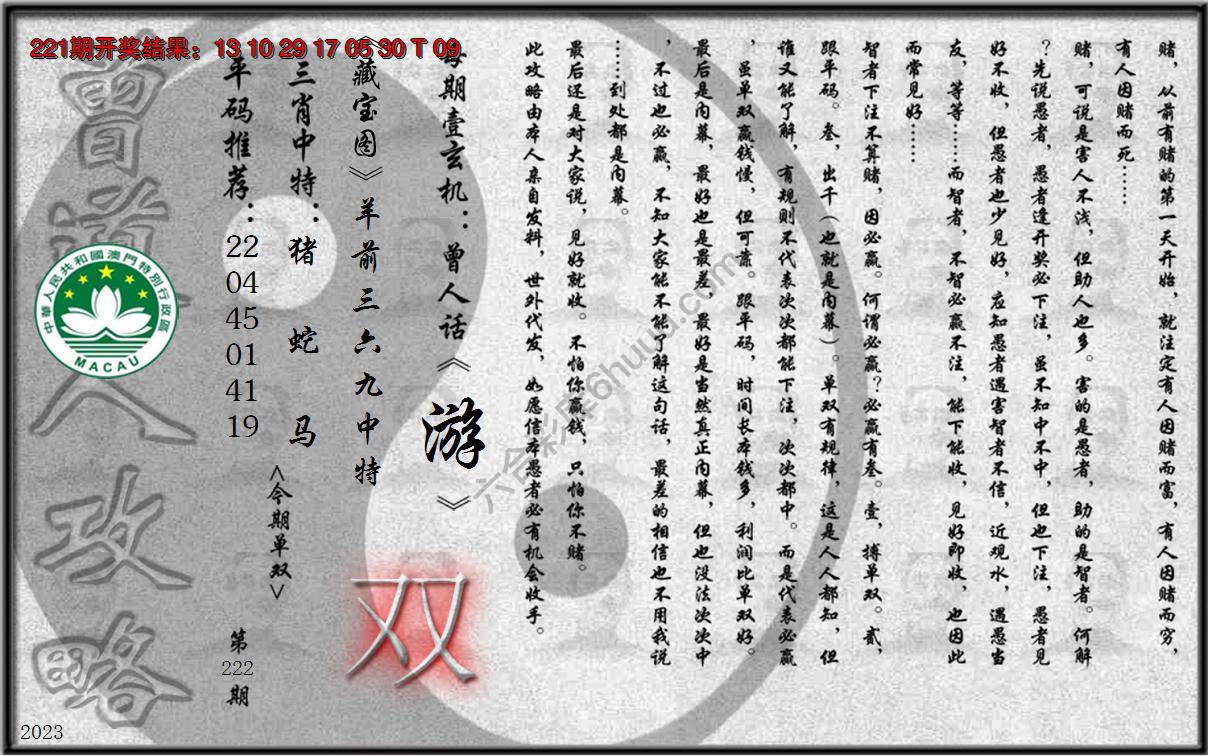 221期开奖结果：13 10 29 17 05 30 T 09
赌，从前有赌的第一天开始，就注定有人因赌而富，有人因赌而穷，
有人因赌而死……
赌，可说是害人不浅，但助人也多。害的是愚者，助的是智者。何解
？先说愚者，愚者逢开奖必下注，虽不知中不中，但也下注，愚者见
好不收，但愚者也少见好，应知愚者遇害智者不信，近观水，遇愚当
友，等等……而智者，不智必赢不注，能下能收，见好即收，也因此
而常见好……
智者下注不算赌，因必赢。何谓必赢？必赢有叁。壹，搏单双。贰，
跟平码。叁，出千（也就是内幕）。单双有规律，这是人人都知，但
谁又能了解，有规则不代表次次都能下注，次次都中。而是代表必赢
，虽单双赢钱慢，但可靠。跟平码，时间长本钱多，利润比单双好。
最后是内幕，最好也是最差，最好是当然真正内幕，但也没法次次中
，不过也必赢，不知大家能不能了解这句话，最差的相信也不用我说
……到处都是内幕。
最后还是对大家说，见好就收。不怕你赢钱，只怕你不赌。
此攻略由本人亲自发料，世外代发，如愿信本愚者必有机会收手。
每期壹玄机：曾人话《游》
《藏宝图》羊前三六九中特
三肖中特：猪 蛇 马
平码推荐：22 04 45 01 41 19
<今期单双>
双
第222期
曾道人攻略
中華人民共和國澳門特別行政區
MACAU
2023